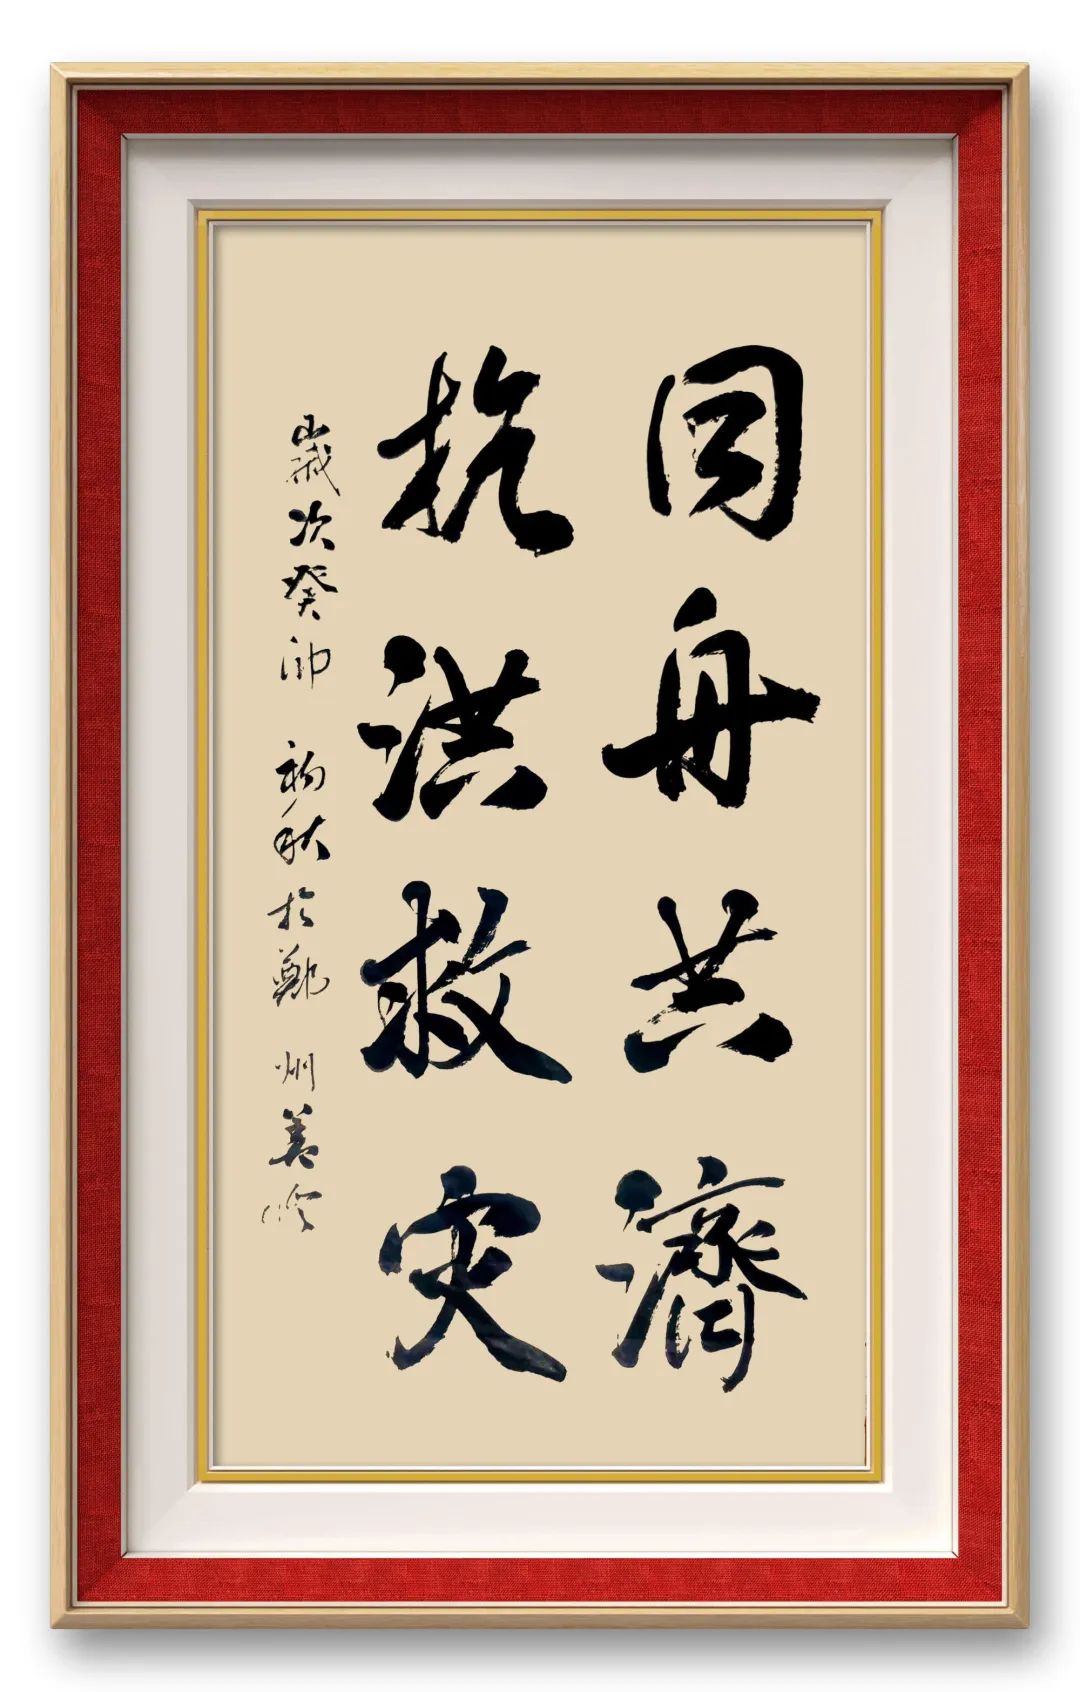 同舟共濟
抗洪救灾
歲次癸卯 初秋於鄭州美